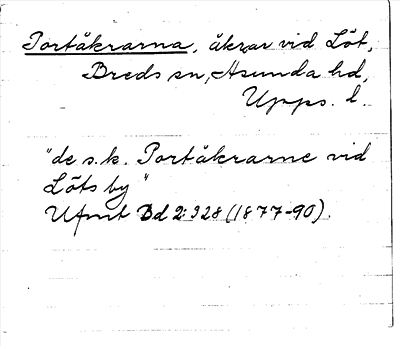 Portåkrarna, åkrar vid Löt,
Breds sn, Åsunda hd,
Upps. l.
"de s.k. Portåkrarne vid
Löts by"
Ufmt Bd 2:328 (1877-90).